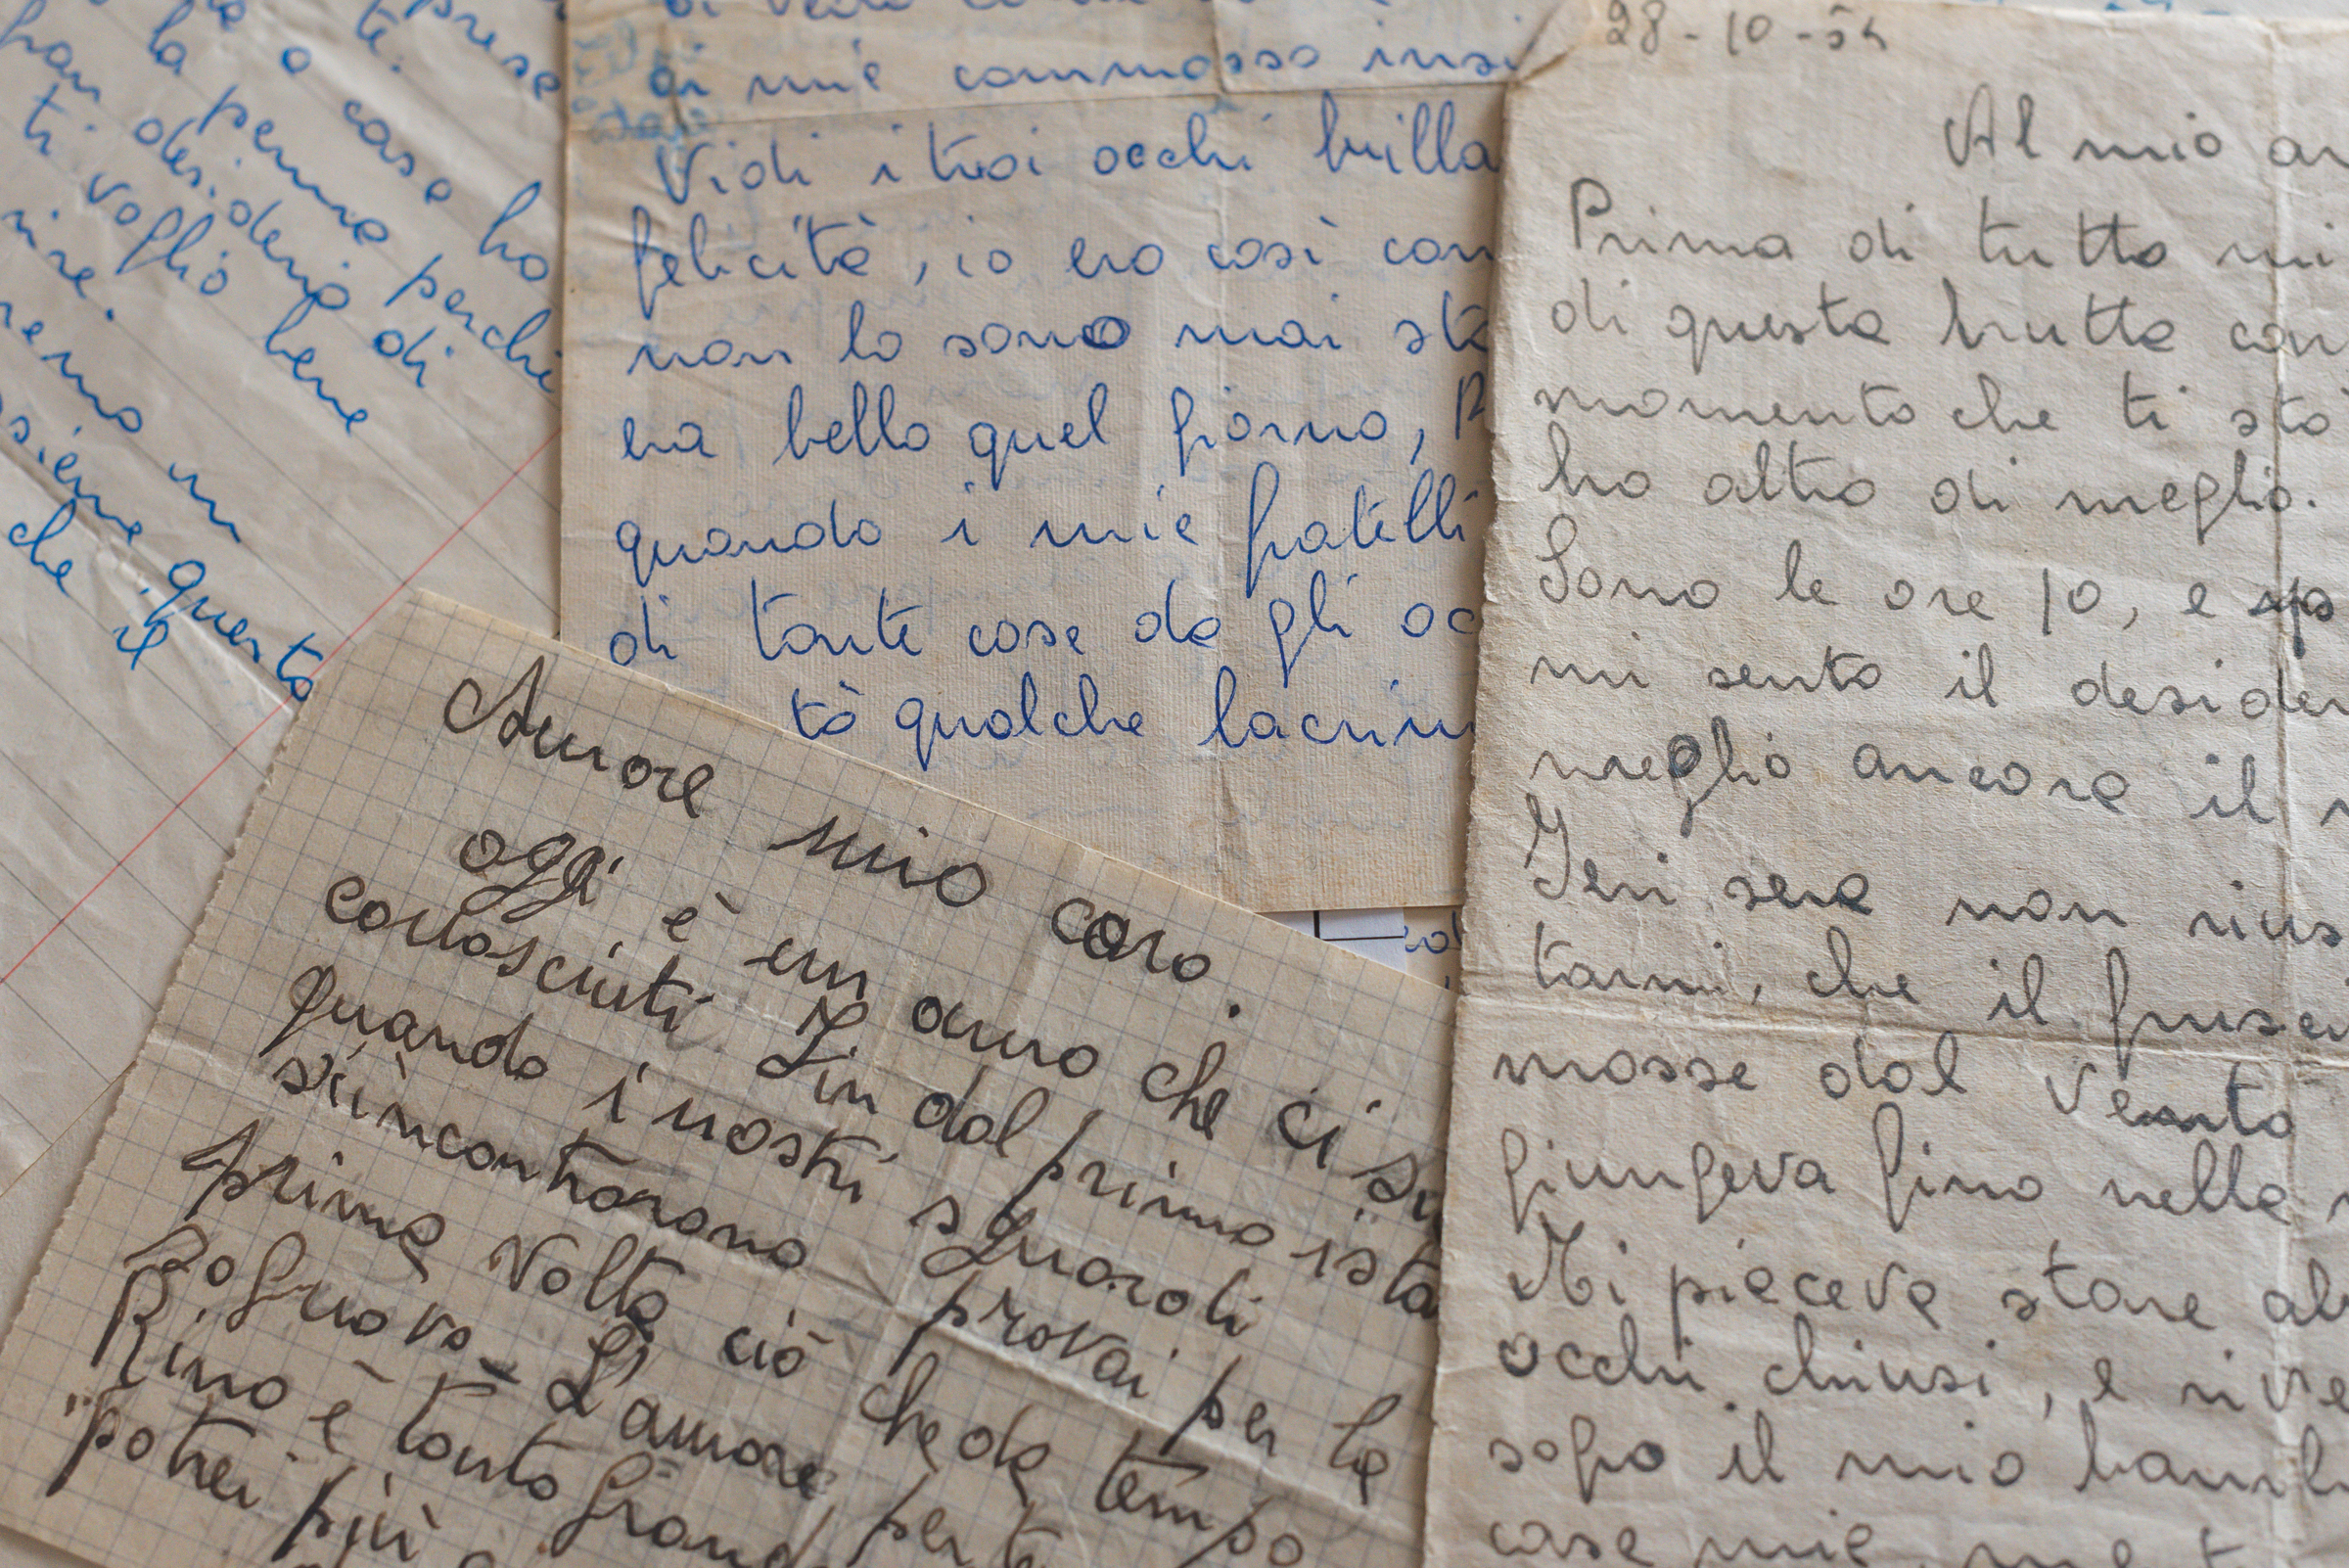 prese
te.
a casa ho
la penna perchè
gran desiderio di
ti voglio bene
in
insieme questo
che il
di mie commosso insi
Vidi i tuoi occhi brilla
felicità, io ero così com
non lo sono mai sta
era bello quel giorno,
quando i mie fratelli
di tante cose da gli oc
tò qualche lacrim
28-10-54
Al mio am
Prima di tutto mi
di questa brutta car
momento che ti sto
ho altro di meglio.
Sono le ore 10, e
mi sento il desider
meglio ancora il
Ieri sera non rius
tarmi, che il frusc
mosse dal vento
giungeva fino nella
Mi piaceva stare al
occhi chiusi, e rive
sogno il mio bamb
case mie, me t
Amore mio caro.
oggi è un anno che ci si
conosciuti. Fin dal primo ista
quando i nostri sguardi
s'incontrarono provai per la
prima volta ciò che da tempo
sognavo_ L'amore per te
Rino è tanto grand
"potrei più